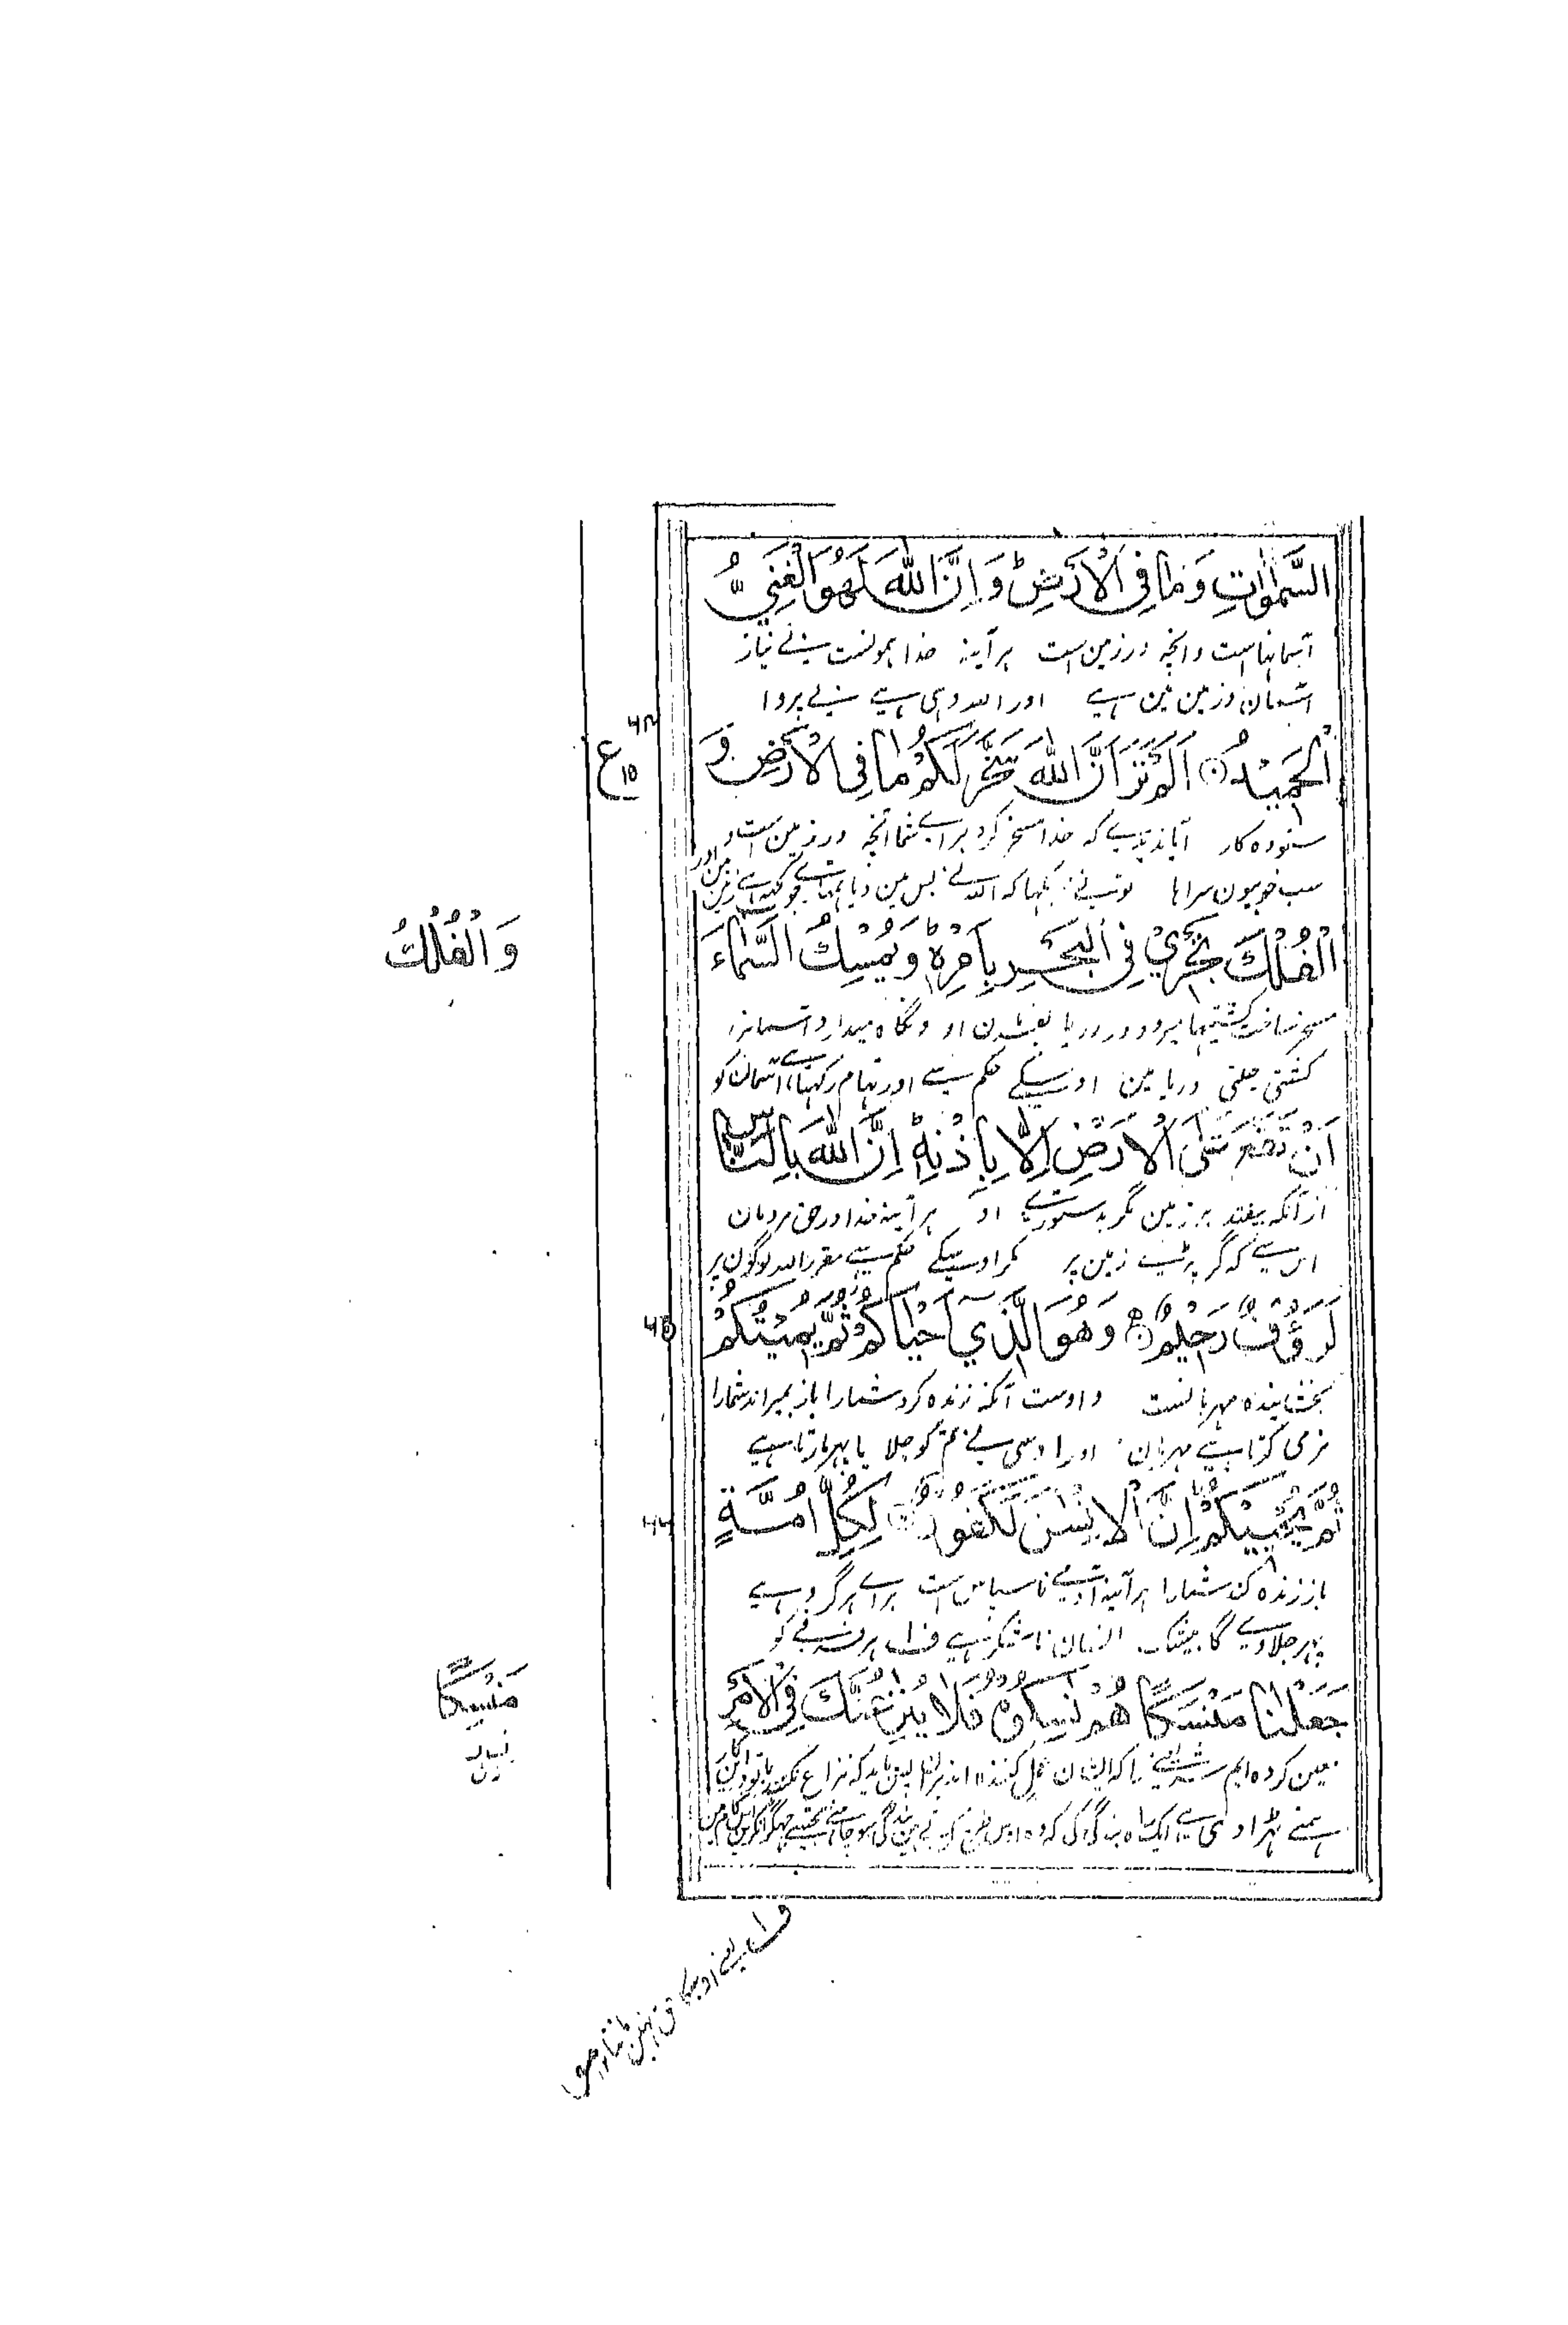 السَّمٰوٰتِ وَمَا فِی الْاَرْضِ ؕ وَ اِنَّ اللّٰهَ لَهُوَ الْغَنِیُّ
آسمانهاست وانچه در زمین است هرآینه خدا همونست بے نیاز
آسمان و زمین مین ہے اور اللہ وہی ہے بے پروا
۶۴
ع
۱۵
الْحَمِیْدُ ۝ اَلَمْ تَرَ اَنَّ اللّٰهَ سَخَّرَ لَكُمْ مَّا فِی الْاَرْضِ وَ
ستوده کار آیا ندیدے که خدا مسخر کرد براے شما انچه در زمین است و
سب خوبیون سراہا تو نے دیکہا کہ اللہ نے بس مین دیا تمہارے جو کچھ ہے زمین مین اور
وَالْفُلْكُ
الْفُلْكَ تَجْرِیْ فِی الْبَحْرِ بِاَمْرِهٖ ؕ وَیُمْسِكُ السَّمَآءَ
مسخر ساخت کشتیها میرود در دریا بفرمان او و نگاه میدارد آسمانرا
کشتی چلتی دریا مین اوسکے حکم سے اور تہام رکہتا ہے آسمان کو
اَنْ تَقَعَ عَلَی الْاَرْضِ اِلَّا بِاِذْنِهٖ ؕ اِنَّ اللّٰهَ بِالنَّاسِ
ازآنکه بیفتد بر زمین مگر بدستورے او هرآینه خدا در حق مردمان
اس سے کہ گر پڑے زمین پر مگر اوسکے حکم سے مقرر اللہ لوگون پر
۶۵
لَرَءُوْفٌ رَّحِیْمٌ ۝ وَهُوَ الَّذِیْۤ اَحْیَاكُمْ ؗ ثُمَّ یُمِیْتُكُمْ
بخشاینده مهربانست و اوست آنکه زنده کرد شمارا باز بمیراند شمارا
نرمی کرتا ہے مہربان اور اوسی نے تم کو جلایا پہر مارتا ہے
۶۶
ثُمَّ یُحْیِیْكُمْ ؕ اِنَّ الْاِنْسٰنَ لَكَفُوْرٌ ۝ لِكُلِّ اُمَّةٍ
باز زنده کند شمارا هرآینه آدمی ناسپاس است براے هر گروہے
پہر جلاویگا بیشک انسان ناشکر ہے ف۱ ہر فرقے کو
مَنْسِكًا
جَعَلْنَا مَنْسَكًا هُمْ نَاسِكُوْهُ فَلَا یُنَازِعُنَّكَ فِی الْاَمْرِ
معین کرده ایم شریعتے را که ایشان عمل کننده اند بران پس باید که نزاع نکنند با تو درین کار
ہمنے ٹہرا دی ہے ایک راہ بندگی کی کہ وہ اوس طرح کرتے ہین بندگی سو چاہئے تجھسے جھگڑا نکرین اس کام مین
ف۱ یعنے اوسکا حق نہین مانتا